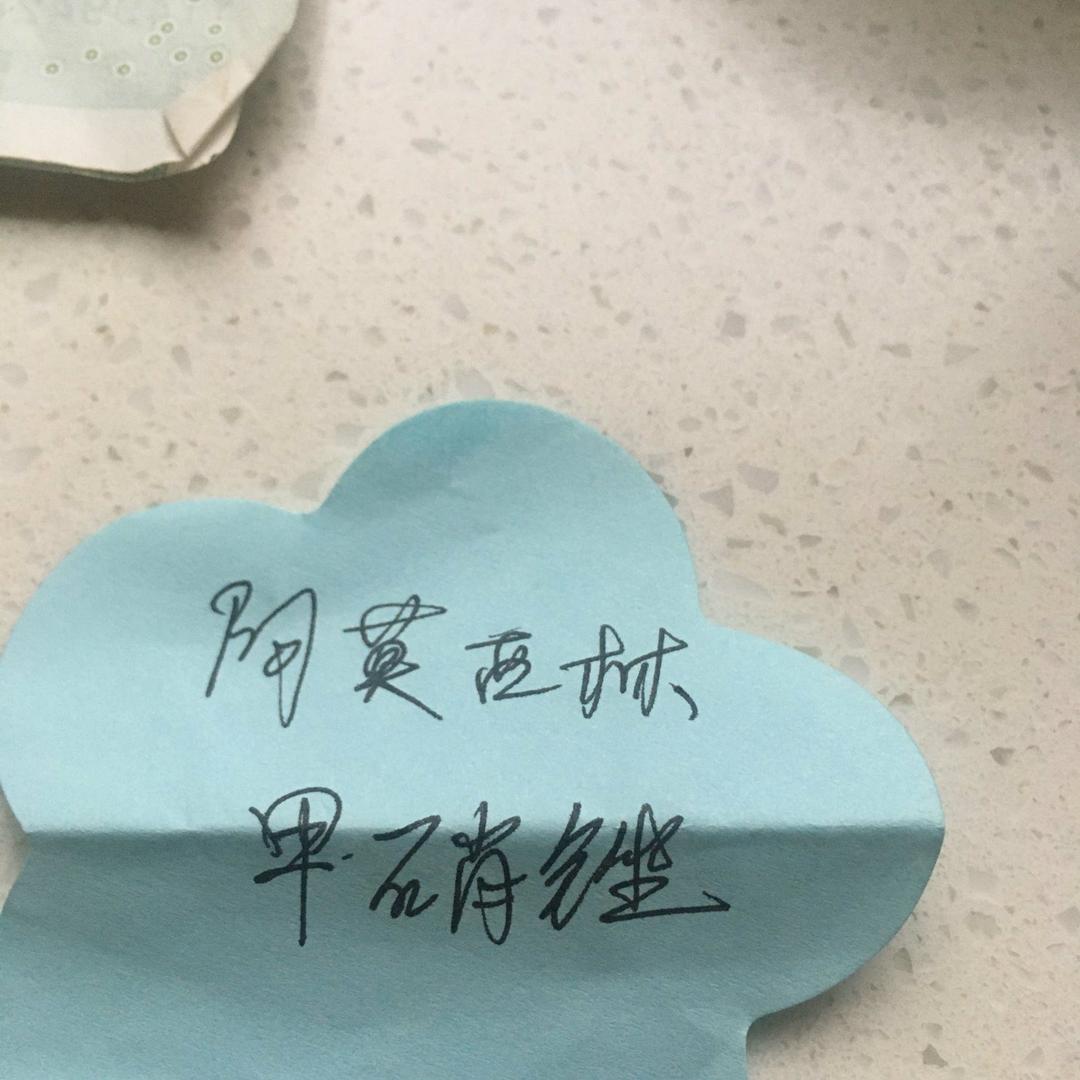 阿莫西林
甲硝锉